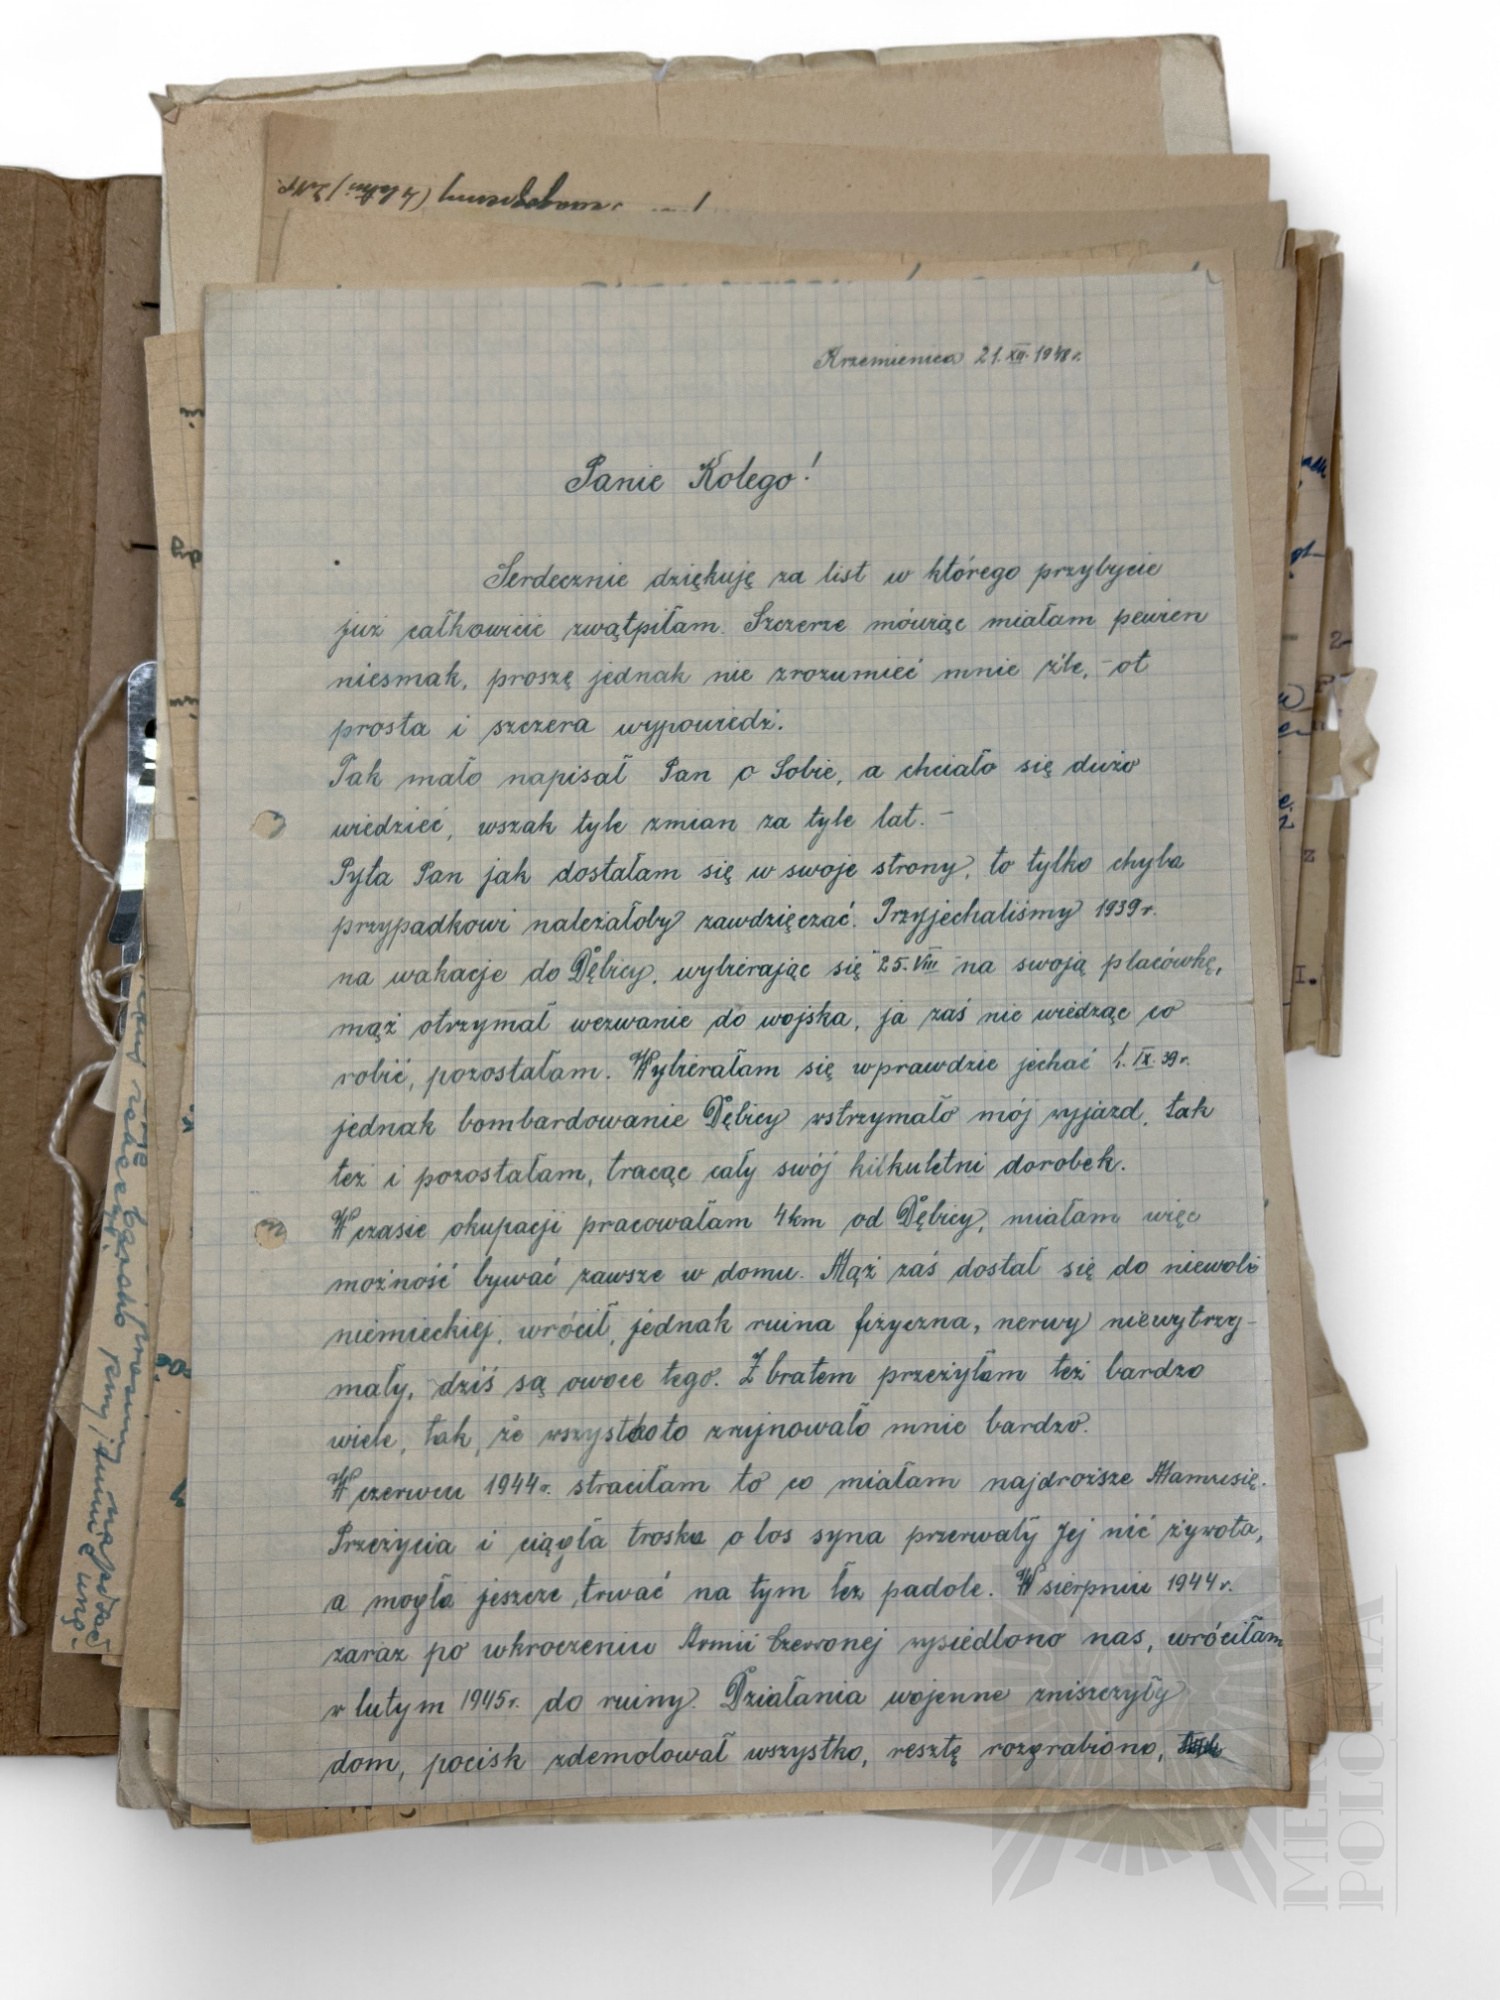 Krzemienica 21.XII.1948r.
Panie Kolego!
Serdecznie dziękuję za list w którego przybycie
już całkowicie zwątpiłam. Szczerze mówiąc miałam pewien
niesmak, proszę jednak nie zrozumieć mnie źle, – ot
prosta i szczera wypowiedź.
Tak mało napisał Pan o Sobie, a chciało się dużo
wiedzieć, wszak tyle zmian za tyle lat. –
Pyta Pan jak dostałam się w swoje strony, to tylko chyba
przypadkowi należałoby zawdzięczać. Przyjechaliśmy 1939r.
na wakacje do Dębicy, wybierając się 25.VIII na swoją placówkę,
mąż otrzymał wezwanie do wojska, ja zaś nie wiedząc co
robić, pozostałam. Wybierałam się wprawdzie jechać 1.IX.39r.
jednak bombardowanie Dębicy wstrzymało mój wyjazd, tak
też i pozostałam, tracąc cały swój kilkuletni dorobek.
W czasie okupacji pracowałam 4km od Dębicy, miałam więc
możność bywać zawsze w domu. Mąż zaś dostał się do niewoli
niemieckiej, wrócił, jednak ruina fizyczna, nerwy niewytrzy-
mały, dziś są owoce tego. Z bratem przeżyłam też bardzo
wiele, tak, że wszystko to zrujnowało mnie bardzo.
W czerwcu 1944r. straciłam to co miałam najdroższe Mamusię.
Przeżycia i ciągła troska o los syna przerwały Jej nić żywota,
a mogła jeszcze trwać na tym łez padole. W sierpniu 1944r.
zaraz po wkroczeniu Armii Czerwonej wysiedlono nas, wróciłam
w lutym 1945r. do ruiny. Działania wojenne zniszczyły
dom, pocisk zdemolował wszystko, resztę rozgrabiono,
POLONIA